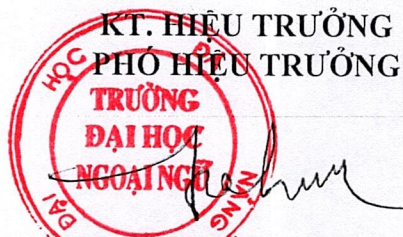 KT. HIỆU TRƯỞNG
PHÓ HIỆU TRƯỞNG
TRƯỜNG
ĐẠI HỌC
NGOẠI NGỮ
ĐẠI HỌC
NẴNG